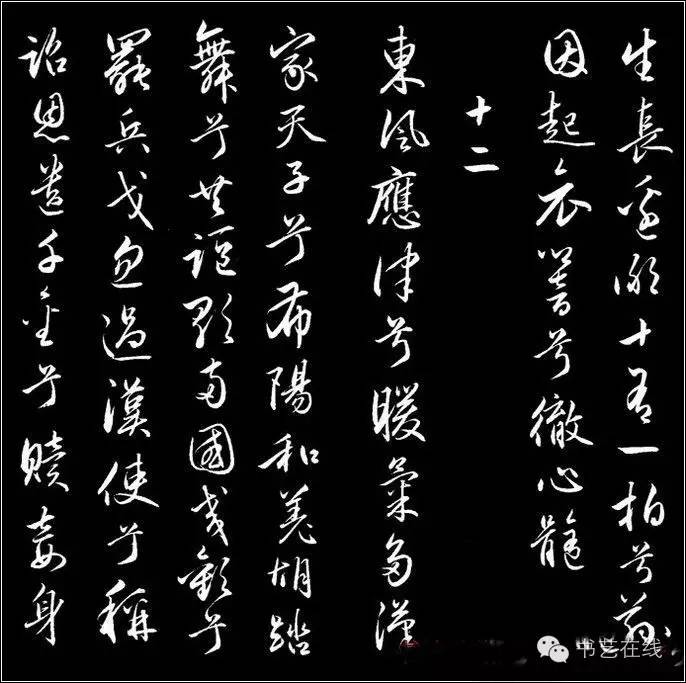 生長邊鄙十有一拍兮茲
因起哀響兮徹心髓
十二
東風應律兮暖氣多漢
家天子兮布陽和羌胡蹈
舞兮共謳歌兩國交歡兮
罷兵戈忽遇漢使兮稱
詔恩遺千金兮贖妾身
书艺在线